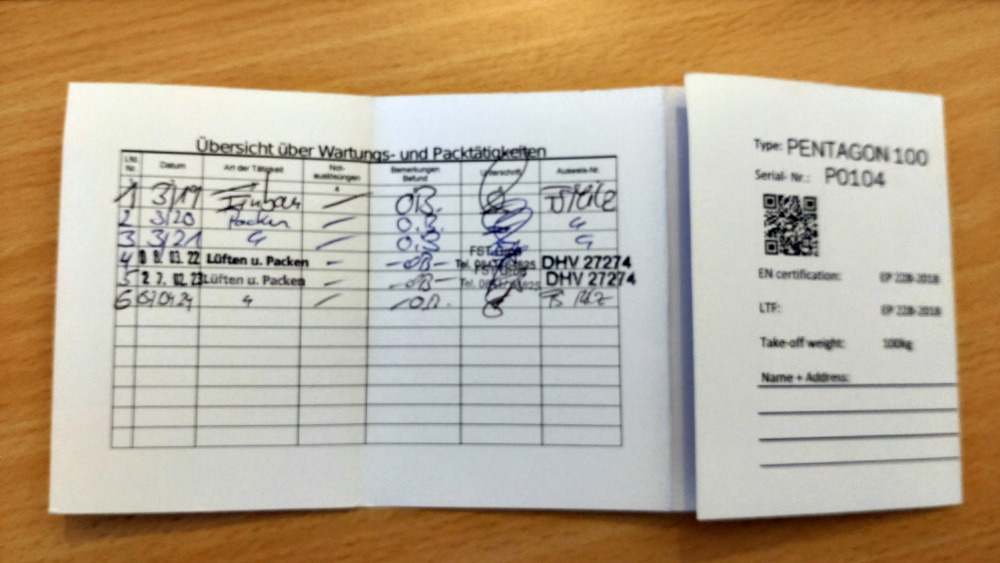 Übersicht über Wartungs- und Packtätigkeiten
Lfd. Nr. Datum Art der Tätigkeit Not- auslösungen Bemerkungen Befund Unterschrift Ausweis-Nr.
4
1 3/19 Einbau – O.B.
2 3/20 Packen – O.B. "
3 3/21 " – O.B. "
4 0 8. 03. 22 Lüften u. Packen – -OB- Tel. DHV 27274
5 2 7. 02. 23 Lüften u. Packen – -OB- Tel. DHV 27274
6 04.24 " – -O.B.
Type: PENTAGON 100
Serial- Nr.: P0104
EN certification: EP 228-2018
LTF: EP 228-2018
Take-off weight: 100kg
Name + Address: